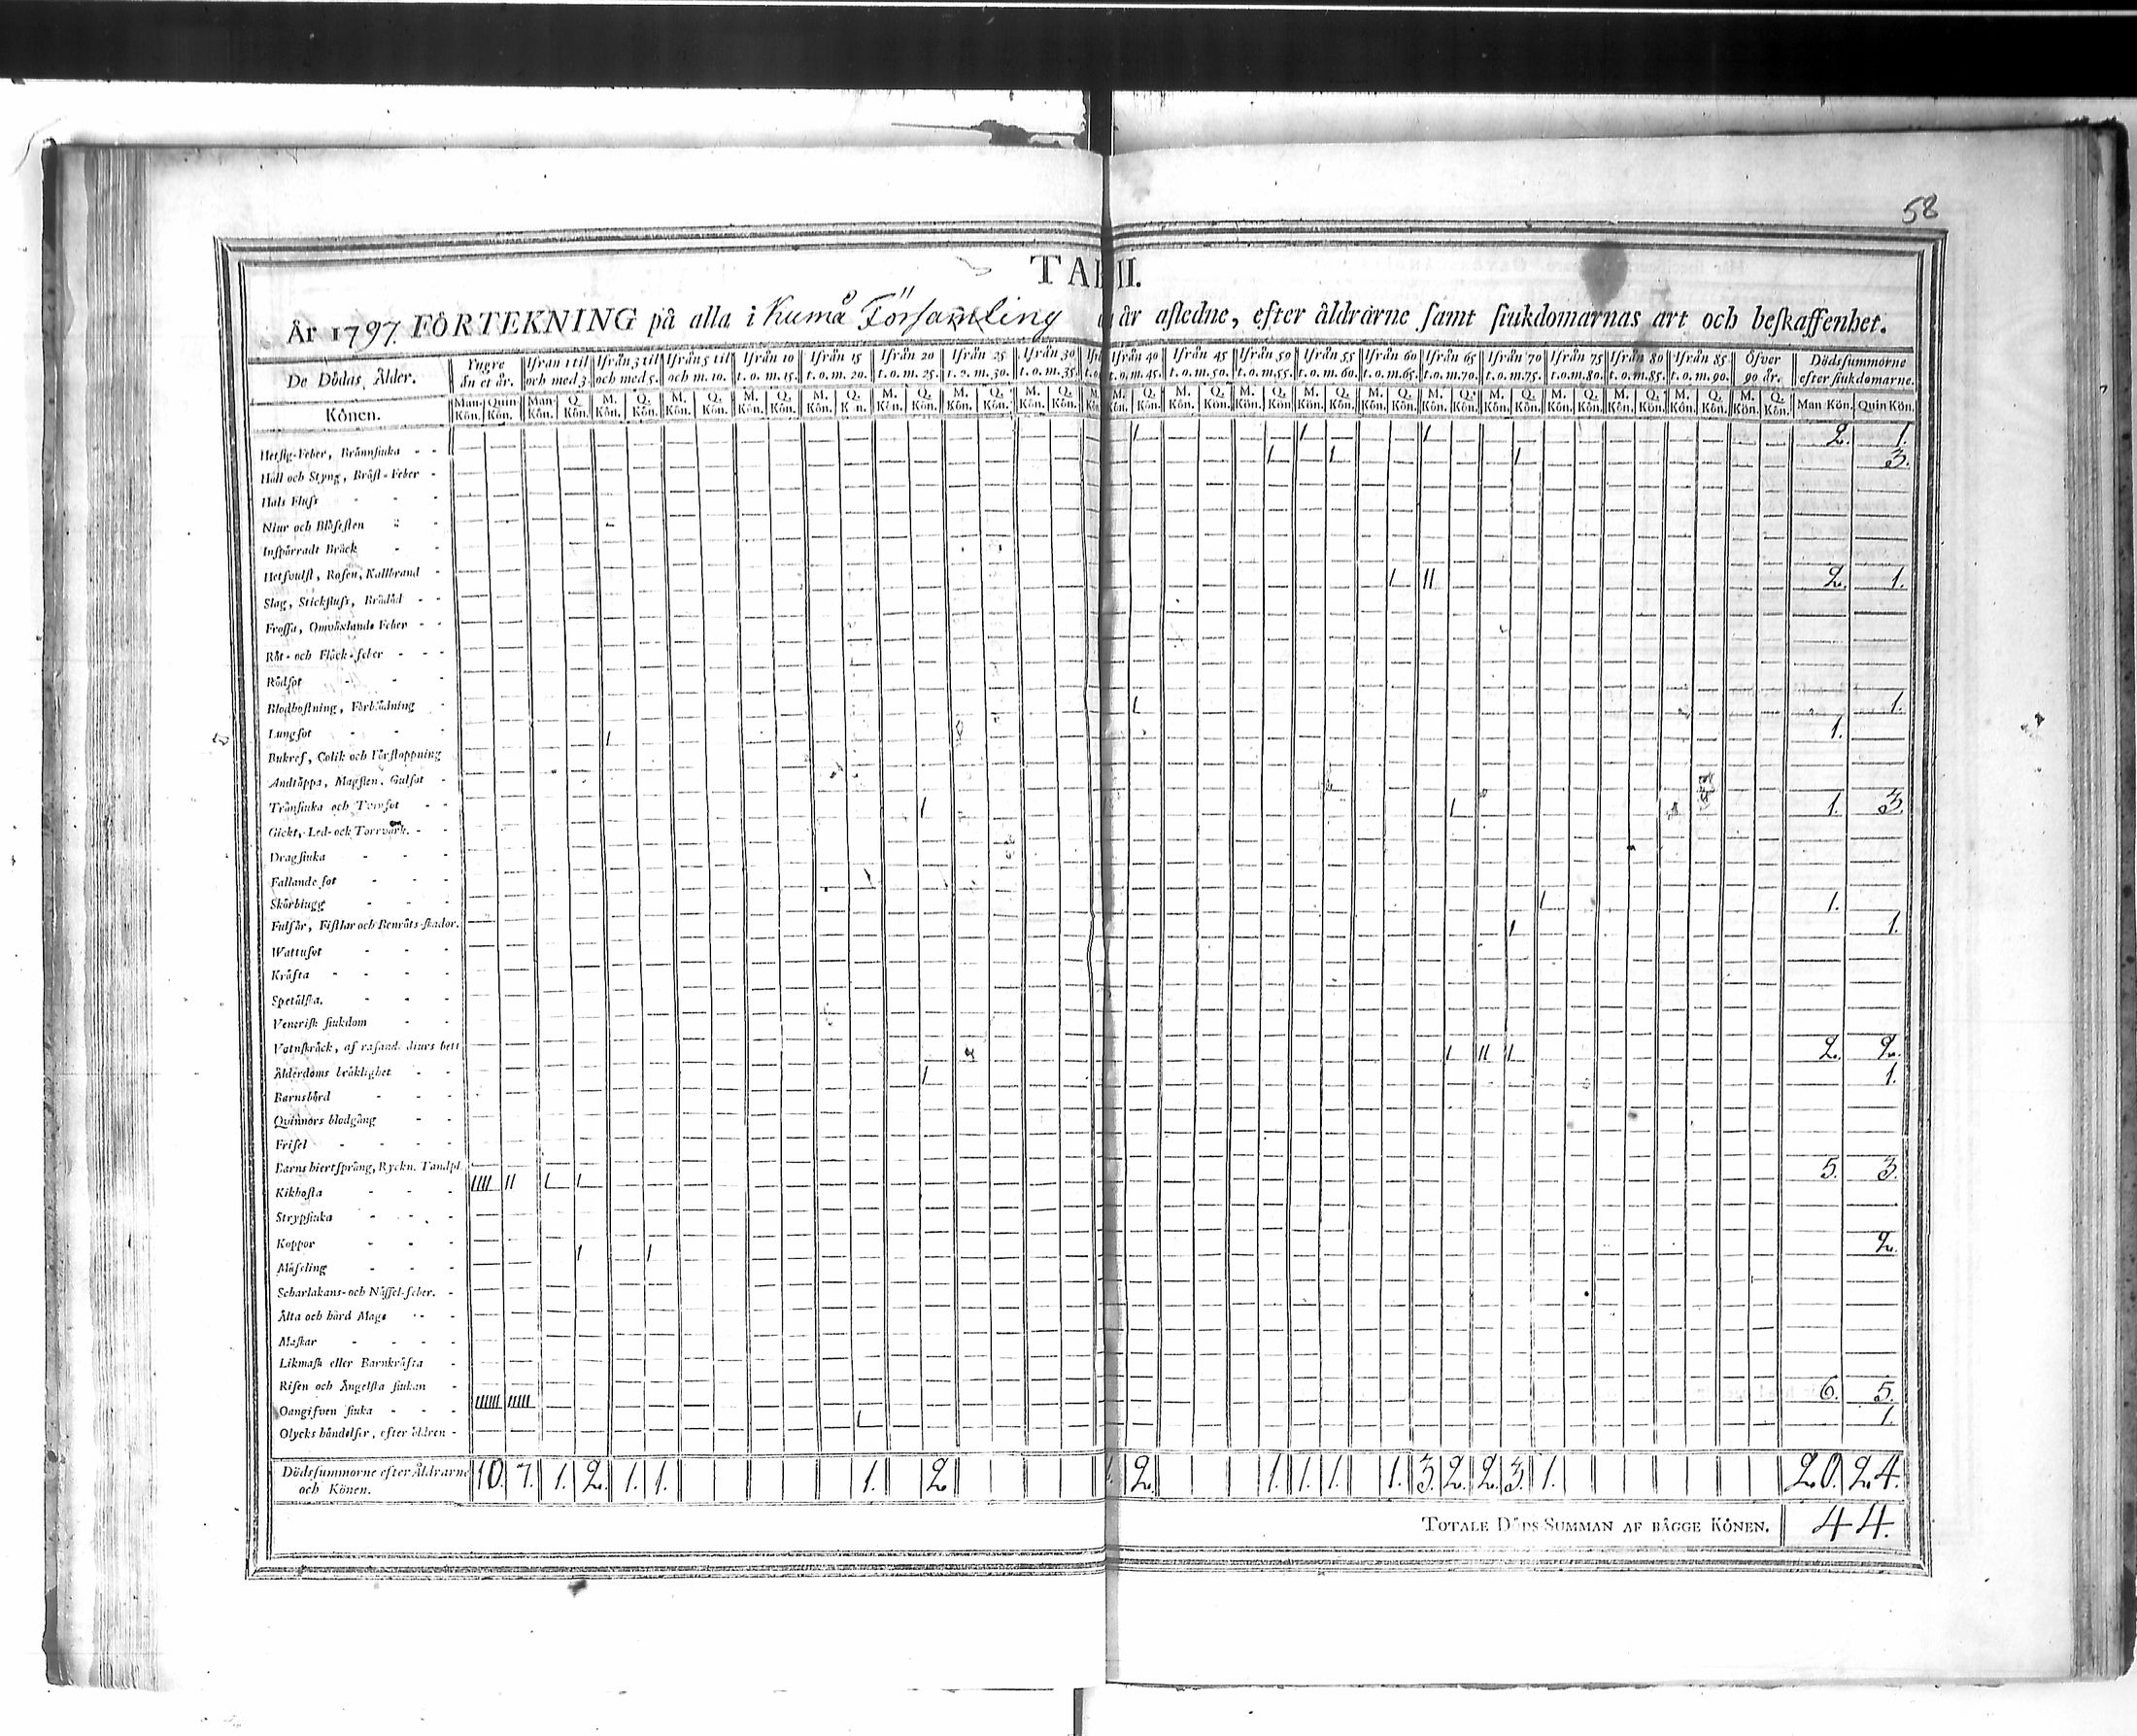 58
TAB II.
År 1797. FÖRTEKNING på alla i Kumå Församling år afledne, efter åldrarne samt siukdomarnas art och beskaffenhet.
De Dödas Ålder. Yngre än et år. Ifrån 1 til och med 3. Ifrån 3 til och med 5. Ifrån 5 til och m. 10. Ifrån 10 t. o. m. 15. Ifrån 15 t. o. m. 20. Ifrån 20 t. o. m. 25. Ifrån 25 t. o. m. 30. Ifrån 30 t. o. m. 35. Ifrån 40 t. o. m. 45. Ifrån 45 t. o. m. 50. Ifrån 50 t. o. m. 55. Ifrån 55 t. o. m. 60. Ifrån 60 t. o. m. 65. Ifrån 65 t. o. m. 70. Ifrån 70 t. o. m. 75. Ifrån 75 t. o. m. 80. Ifrån 80 t. o. m. 85. Ifrån 85 t. o. m. 90. Öfver 90 år. Dödssummorne efter siukdomarne.
Könen. Man Kön. Quin Kön. Man Kön. Q. Kön. M. Kön. Q. Kön. M. Kön. Q. Kön. M. Kön. Q. Kön. M. Kön. Q. Kön. M. Kön. Q. Kön. M. Kön. Q. Kön. M. Kön. Q. Kön. M. Kön. Q. Kön. M. Kön. Q. Kön. M. Kön. Q. Kön. M. Kön. Q. Kön. M. Kön. Q. Kön. M. Kön. Q. Kön. M. Kön. Q. Kön. M. Kön. Q. Kön. M. Kön. Q. Kön. M. Kön. Q. Kön. M. Kön. Q. Kön. Man Kön. Quin Kön.
Hetsig-Feber, Brännsiuka 1 1 1 2. 1.
Håll och Styng, Bröst-Feber 1 1 1 3.
Hals Fluss
Niur och Blåsesten
Inspärradt Bråck
Hetsvulst, Rosen, Kallbrand
Slag, Stickfluss, Brådöd 1 II 2. 1.
Frossa, Omväxlande Feber
Röt- och Fläck-feber
Rödsot
Blodhostning, Förblödning
Lungsot 1 1.
Bukref, Colik och Förstoppning 1 1.
Andtäppa, Magsten, Gulsot
Trånsiuka och Tvinsot 1 1 1. 3.
Gickt, Led- och Torrvärk.
Dragsiuka
Fallande sot
Skörbiugg 1 1.
Fulsår, Fistlar och Benröts-skador. 1 1.
Wattusot
Kräfta
Spetälska.
Venerisk siukdom
Vatnskräck, af rasand. diurs bett
Ålderdoms bräklighet 1 II 1 2. 2.
Barnsbörd 1 1.
Quinnors blodgång
Frisel
Barns hiertsprång, Ryckn. Tandpl.
Kikhosta IIII II 1 1 5. 3.
Strypsiuka
Koppor
Mäsling 1 1 2.
Scharlakans- och Nässel-feber.
Älta och hård Mage
Maskar
Likmask eller Barnkräfta
Risen och Ängelska siukan
Oangifven siuka IIIIII IIIII 6. 5.
Olycks händelser, efter bilden 1 1.
Dödssummorne efter Åldrarne och Könen. 10. 7. 1. 2. 1. 1. 1. 2 2. 1. 1. 1. 1. 3. 2. 2. 3. 1. 20. 24.
TOTALE DÖDS-SUMMAN AF BÄGGE KÖNEN. 44.